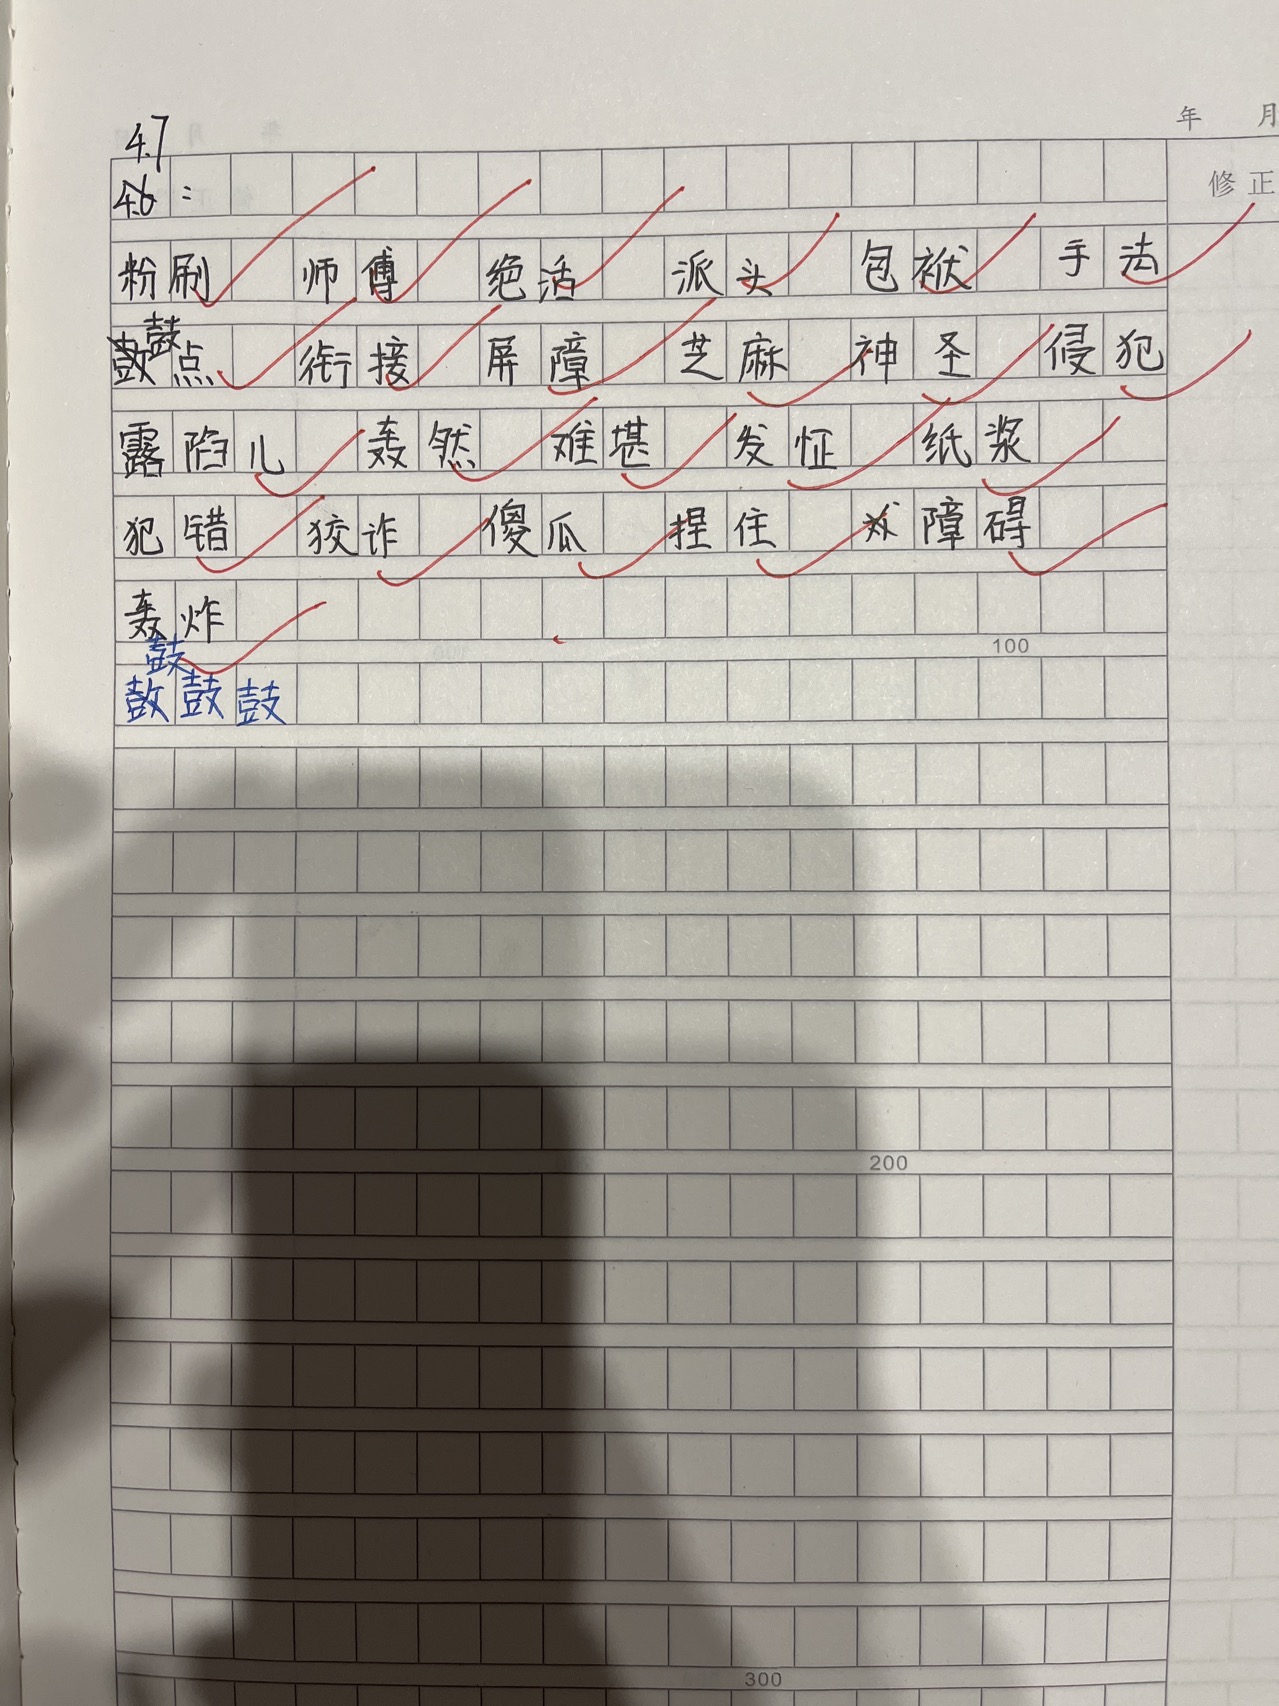 年 月
4.7
4.6：
修正
粉刷 师傅 绝活 派头 包袱 手法
鼓
鼓点 衔接 屏障 芝麻 神圣 侵犯
露陷儿 轰然 难堪 发怔 纸浆
犯错 狡诈 傻瓜 捏住 障碍
轰炸
100
鼓
鼓鼓鼓
200
300